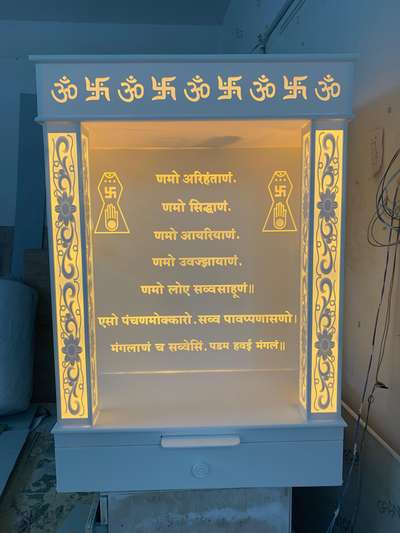 ॐ 卐 ॐ 卐 ॐ 卐 ॐ 卐 ॐ
णमो अरिहंताणं.
णमो सिद्धाणं.
णमो आयरियाणं.
णमो उवज्झायाणं.
णमो लोए सव्वसाहूणं॥
एसो पंचणमोक्कारो. सव्व पावप्पणासणो।
मंगलाणं च सव्वेसिं. पडम हवई मंगलं॥